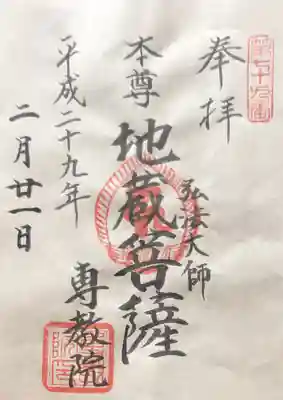 奉拝
弘法大師
本尊
地蔵菩薩
専教院
平成二十九年
二月廿一日